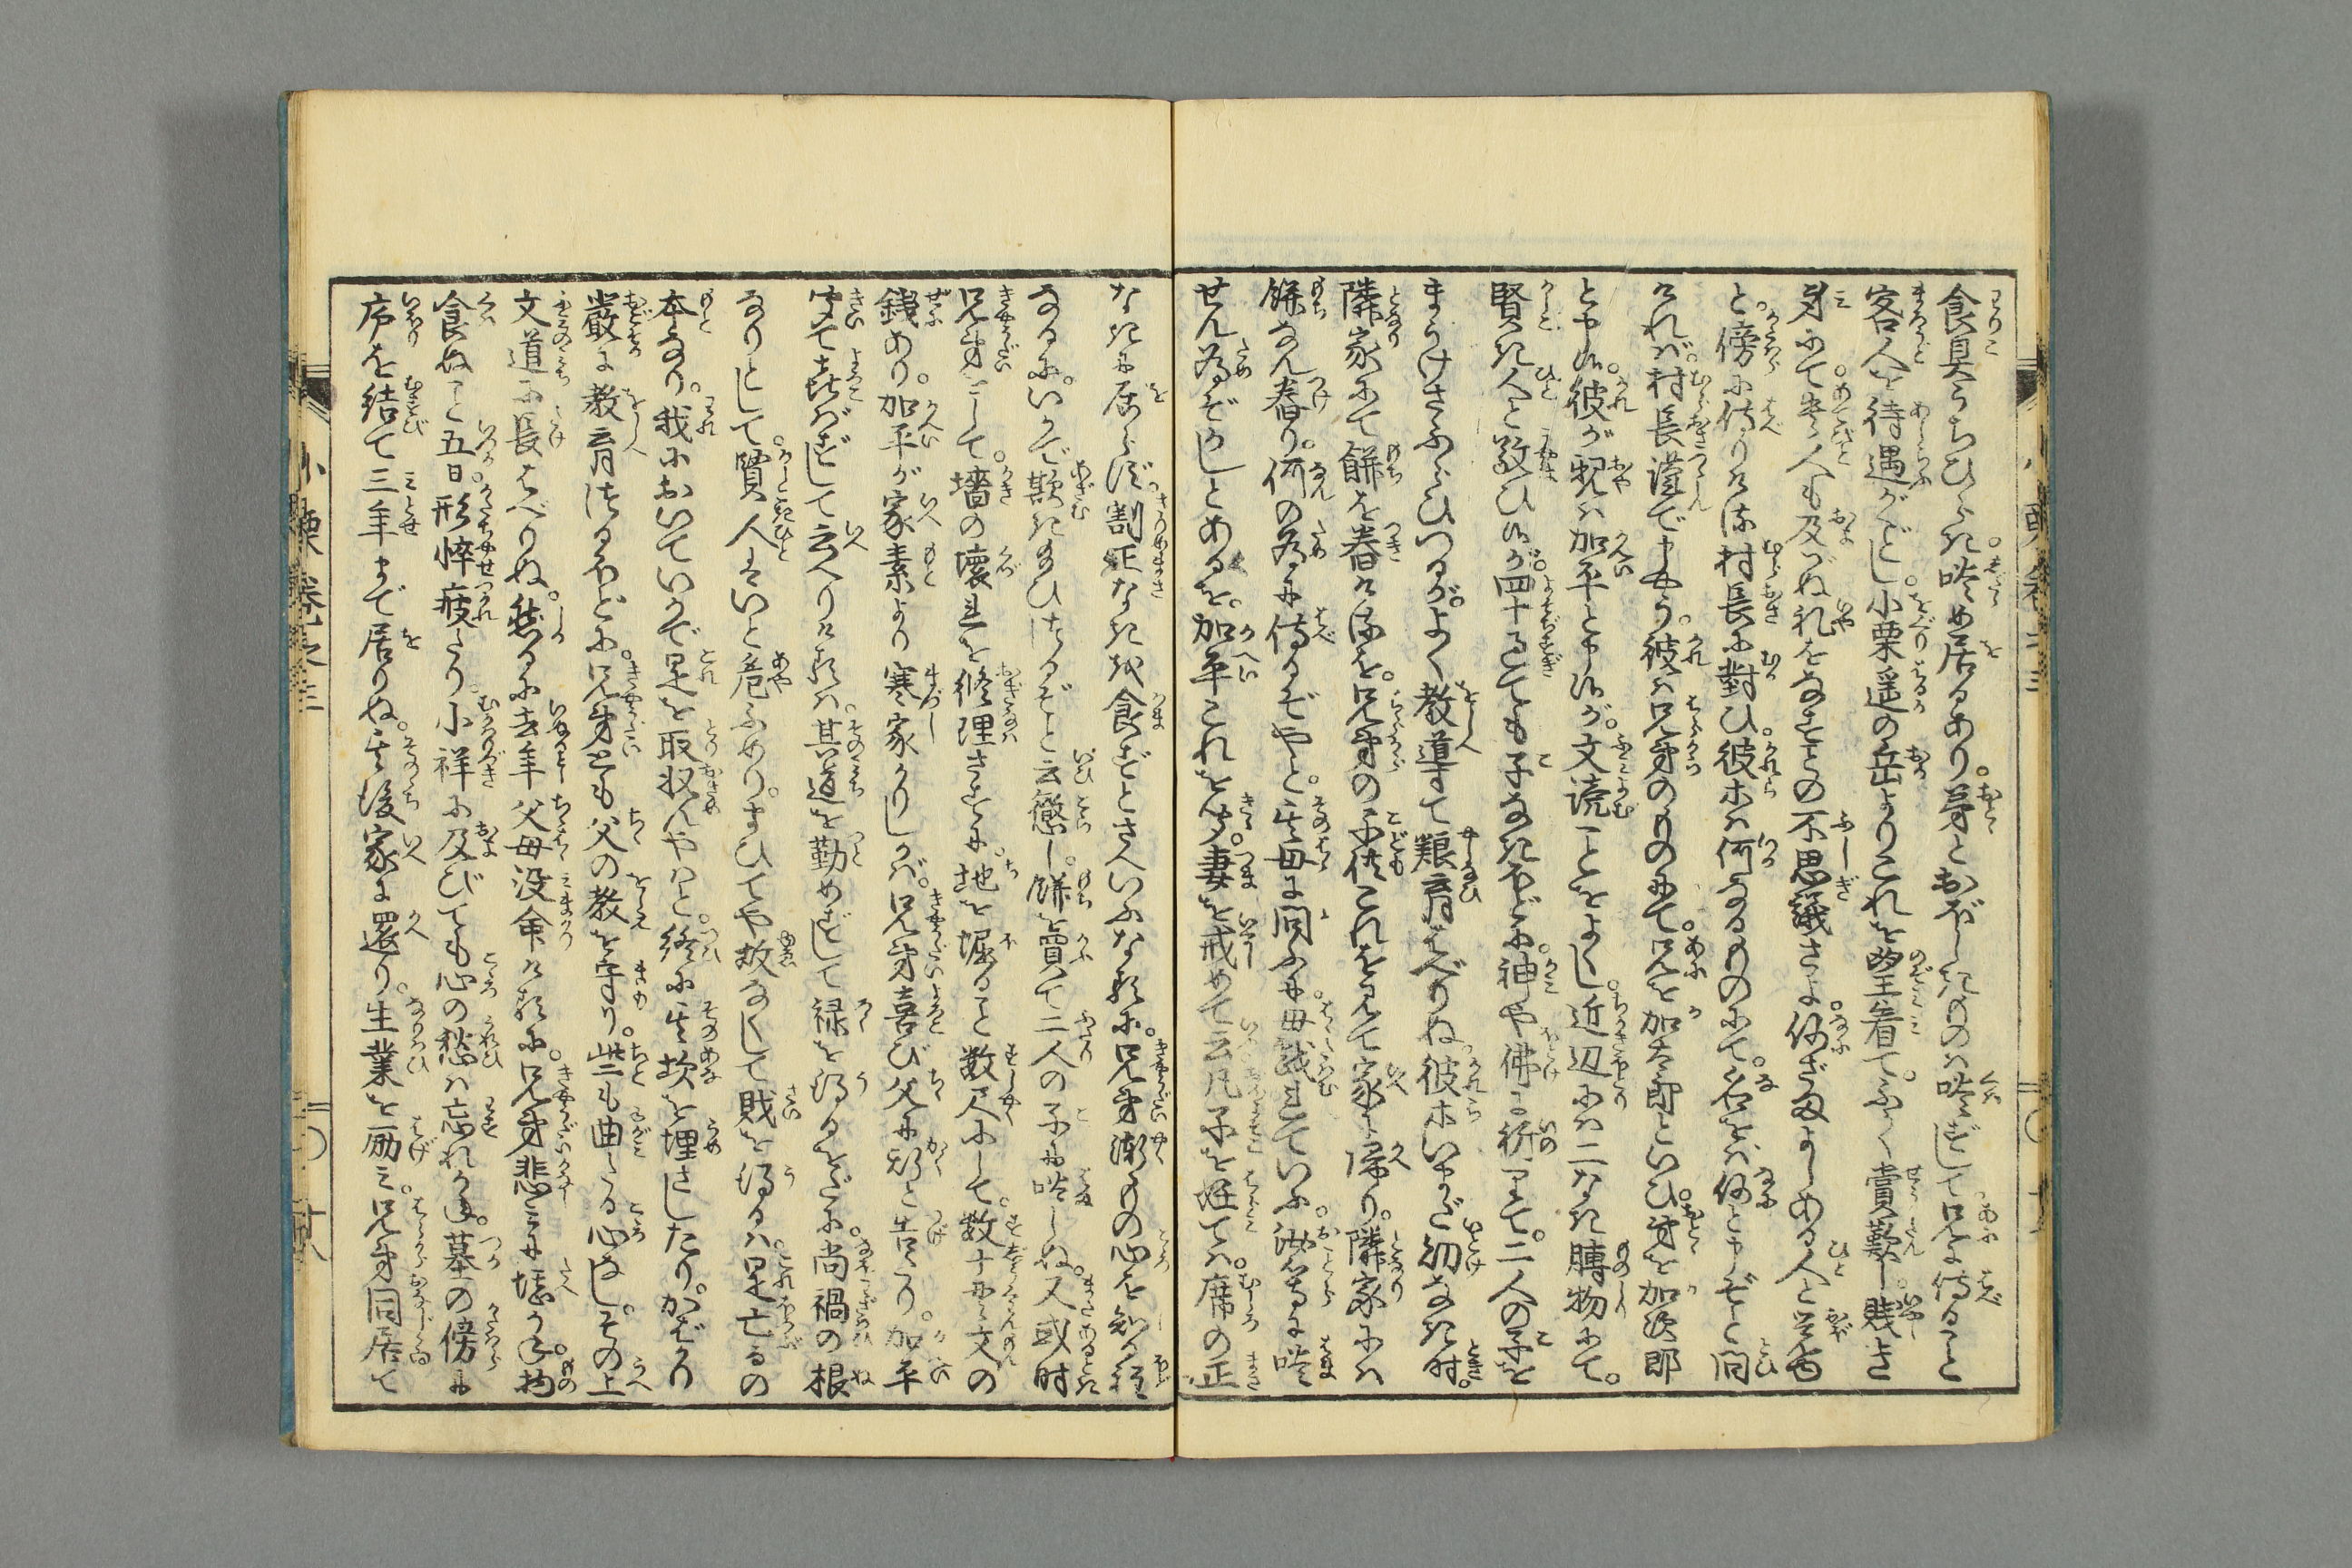 食具うちひらき。啖め居るあり。弟とおぼしきものは啖ずして兄に侍ること
客人を待遇がごとし。小栗遥の岳よりこれを望着て。ふかく賞歎し。賤き
身にて。貴人も及ばぬ礼をなすことの不思議さよ。何ざまよしある人と
と。傍に侍りける村長に対ひ。彼ホは何なるものにて。名をば何と申ぞと問
ければ。村長謹で申やう。彼は兄弟のものにて。兄を加太郎といひ。弟を加次郎
と申候。彼が親は加平と申候が。文読ことをよくし。近辺には二なき博物にて。
賢き人と敬ひ候が。四十過ても子なきほどに。神や佛に祈りて。二人の子を
まうけさふらひつるが。よく教導て艱育はべりぬ。彼ホいまだ幼なき時。
隣家にて餅を舂ける を。兄弟の子供これを見て家に帰り。隣家には
餅なん舂り。何の為に侍るぞやと。其母に問ふに。母戯れていふ。汝等に啖
せん為ぞかしとあるを。加平これを聞。妻を戒めて云。凡子を妊ては。席の正
なきに居らず。割正なきは食ずとさへいふなるに。兄弟漸もの心を知る程
なるに。いかで欺き給ひけるぞと云懲し。餅を買て二人の子に啖しぬ。又或時
兄弟して。墻の壊れを修理さすに。地を堀ること数尺にして。数十貫文の
銭あり。加平が家素より寒家かりしかば。兄弟喜び父に斯と告たり。加平
聞て喜ばずして云へりけるは。其道を勤めずして禄を得るをだに。尚禍の根
なりとして。賢人はいと危ふめり。まひてや故なくして財を得るは。是亡るの
本なり。我においていかで是を取収んやはと。終に其坎を埋さしたり。かばかり
厳に教育けるほどに。兄弟とも父の教を守り。些も曲たる心なし。その上
文道に長はべりぬ。然るに去年父母没命けるに。兄弟悲みに堪かね。物
食ぬこと五日。形悴疲たり。小祥に及びても心の愁は忘れかね。墓の傍に
庐を結て三年まで居りぬ。其後家に還り。生業を励み。兄弟同居て
小栗巻之三